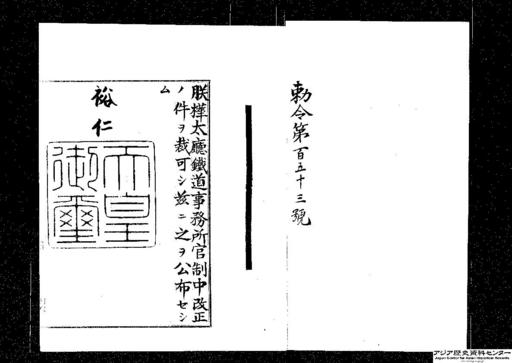 勅令第百五十三號
朕樺太廳鐵道事務所官制中改正
ノ件ヲ裁可シ茲ニ之ヲ公布セシ
ム
裕仁
天皇
御璽
アジア歴史資料センター
Japan Center for Asian Historical Records